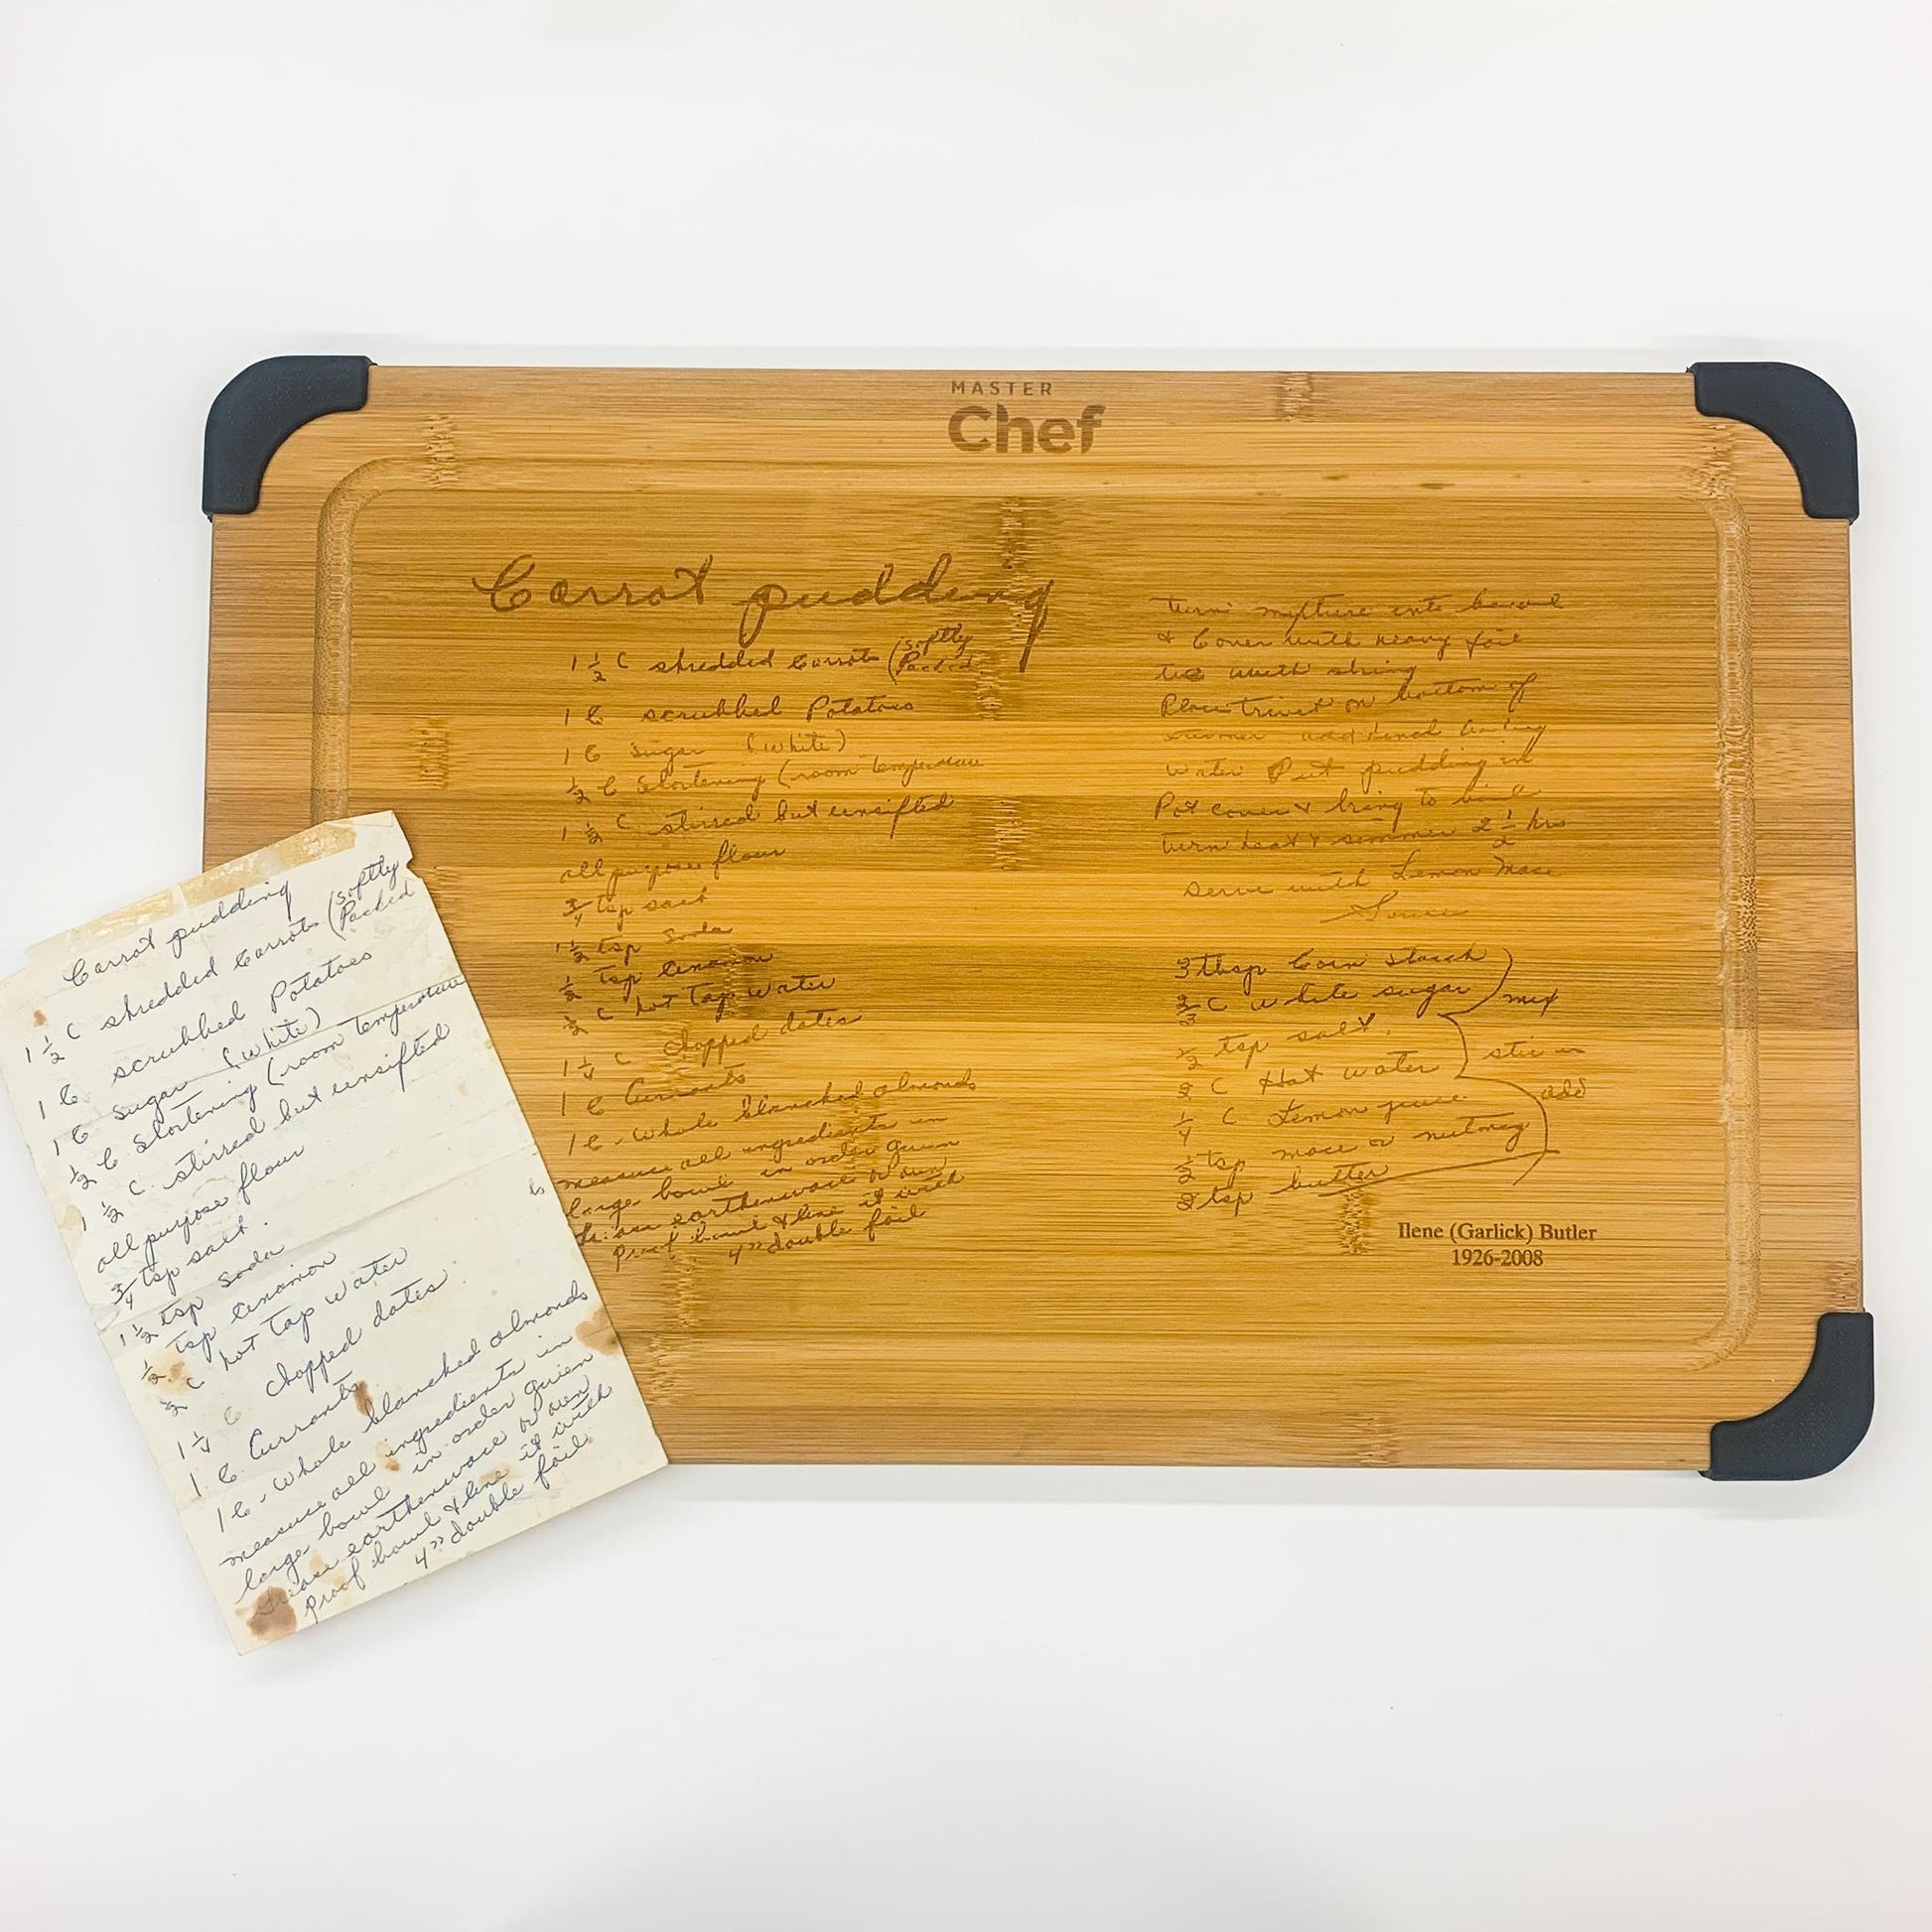 MASTER
Chef
Carrot pudding
1 1/2 C shredded Carrots (Softly
Packed
1 C scrubbed Potatoes
1 C Sugar (White)
1/2 C Shortening (room temperature
1 1/2 C stirred but unsifted
all purpose flour
3/4 tsp salt
1 1/2 tsp Soda
1/2 tsp Cinamon
1/2 C hot Tap Water
1 1/4 C Chopped dates
1 C Currants
1 C - Whole blanched almonds
measure all ingredients in
large bowl in order given
earthenware or oven
Proof bowl & line it with
4" double foil
turn mixture into bowl
& Cover with heavy foil
tie with string
Place trivet on bottom of
water Put pudding in
Pot cover & bring to boil
turn heat & simmer 2 1/2 hrs
serve with Lemon Mace
Sauce
3 tbsp Corn Starch
2/3 C White sugar
mix
1/2 tsp salt
2 C Hot water
stir in
1/4 C Lemon juice
add
1/2 tsp mace or nutmeg
2 tsp butter
Ilene (Garlick) Butler
1926-2008
Carrot pudding
1 1/2 C shredded Carrots (Softly
Packed
1 C scrubbed Potatoes
1 C Sugar (White)
1/2 C Shortening (room temperature
1 1/2 C stirred but unsifted
all purpose flour
3/4 tsp salt
1 1/2 tsp Soda
1/2 tsp Cinamon
1/2 C hot Tap Water
1 1/4 C Chopped dates
1 C Currants
1 C - Whole blanched almonds
measure all ingredients in
large bowl in order given
Grease earthenware or oven
Proof bowl & line it with
4" double foil